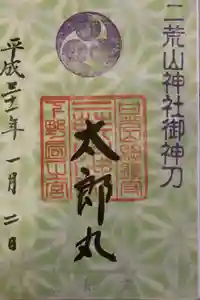 二荒山神社御神刀
太郎丸
下野國一之宮
平成三十一年一月二日